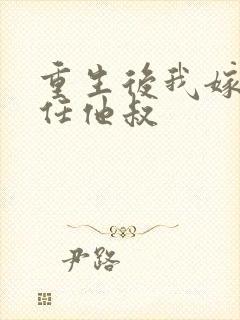 重生後我嫁
任他叔
尹路